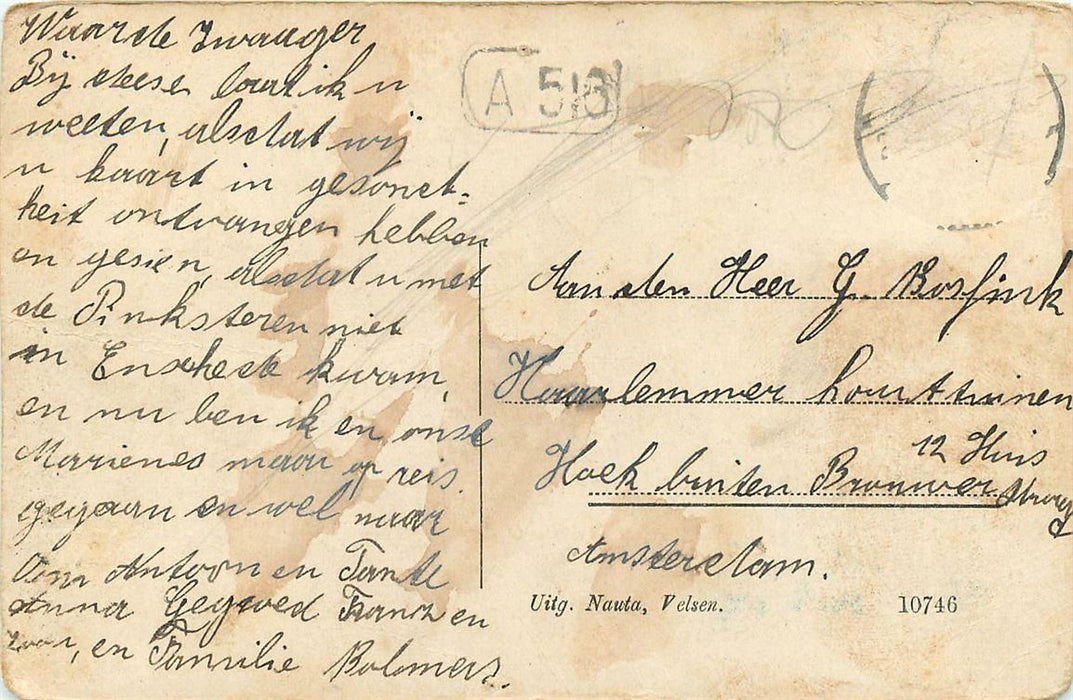 Waarde Zwaager
Bij deese laat ik u
weeten, alsdat wij
u kaart in gesond=
heit ontvangen hebben
en gesien, alsdat u met
de Pinksteren niet
in Enschede kwam,
en nu ben ik en onse
Marienes maar op reis.
gegaan en wel naar
Oom Antoon en Tante
Anna Gegroed Franz en
en Familie Bolmers.
A 516
Aan den Heer G. Bosfink
Haarlemmer houttuinen
12 Huis
Hoek buiten Brouwer
Amsterdam.
Uitg. Nauta, Velsen. 10746